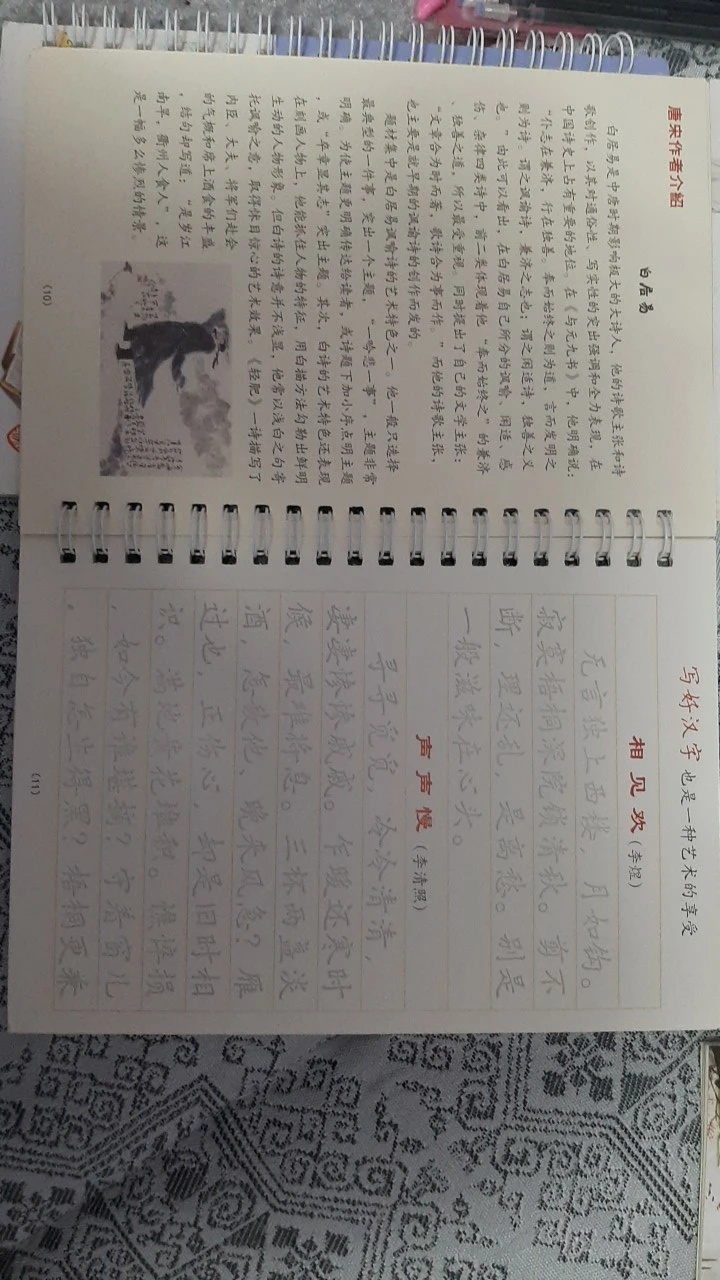 唐宋作者介绍
白居易
白居易是中唐时期影响极大的大诗人，他的诗歌主张和诗
歌创作，以其对通俗性、写实性的突出强调和全力表现，在
中国诗史上占有重要的地位。在《与元九书》中，他明确说：
“仆志在兼济，行在独善。奉而始终之则为道，言而发明之
则为诗。谓之讽谕诗，兼济之志也；谓之闲适诗，独善之义
也。”由此可以看出，在白居易自己所分的讽喻、闲适、感
伤、杂律四类诗中，前二类体现着他“奉而始终之”的兼济
、独善之道，所以最受重视。同时提出了自己的文学主张：
“文章合为时而著，歌诗合为事而作。”而他的诗歌主张，
也主要是就早期的讽谕诗的创作而发的。
题材集中是白居易讽喻诗的艺术特色之一。他一般只选择
最典型的一件事，突出一个主题，“一吟悲一事”，主题非常
明确。为使主题更明确传达给读者，或诗题下加小序点明主题
，或“卒章显其志”突出主题。其次，白诗的艺术特色还表现
在刻画人物上，他能抓住人物的特征，用白描方法勾勒出鲜明
生动的人物形象。但白诗的诗意并不浅显，他常以浅白之句寄
托讽喻之意，取得怵目惊心的艺术效果。《轻肥》一诗描写了
内臣、大夫、将军们赴会
的气概和席上酒食的丰盛
，结句却写道：“是岁江
南旱，衢州人食人”，这
是一幅多么惨烈的情景。
(10)
写好汉字 也是一种艺术的享受
相见欢（李煜）
无言独上西楼，月如钩。
寂寞梧桐深院锁清秋。剪不
断，理还乱，是离愁。别是
一般滋味在心头。
声声慢（李清照）
寻寻觅觅，冷冷清清，
凄凄惨惨戚戚。乍暖还寒时
候，最难将息。三杯两盏淡
酒，怎敌他、晚来风急？雁
过也，正伤心，却是旧时相
识。满地黄花堆积。憔悴损
，如今有谁堪摘？守着窗儿
，独自怎生得黑？梧桐更兼
(11)